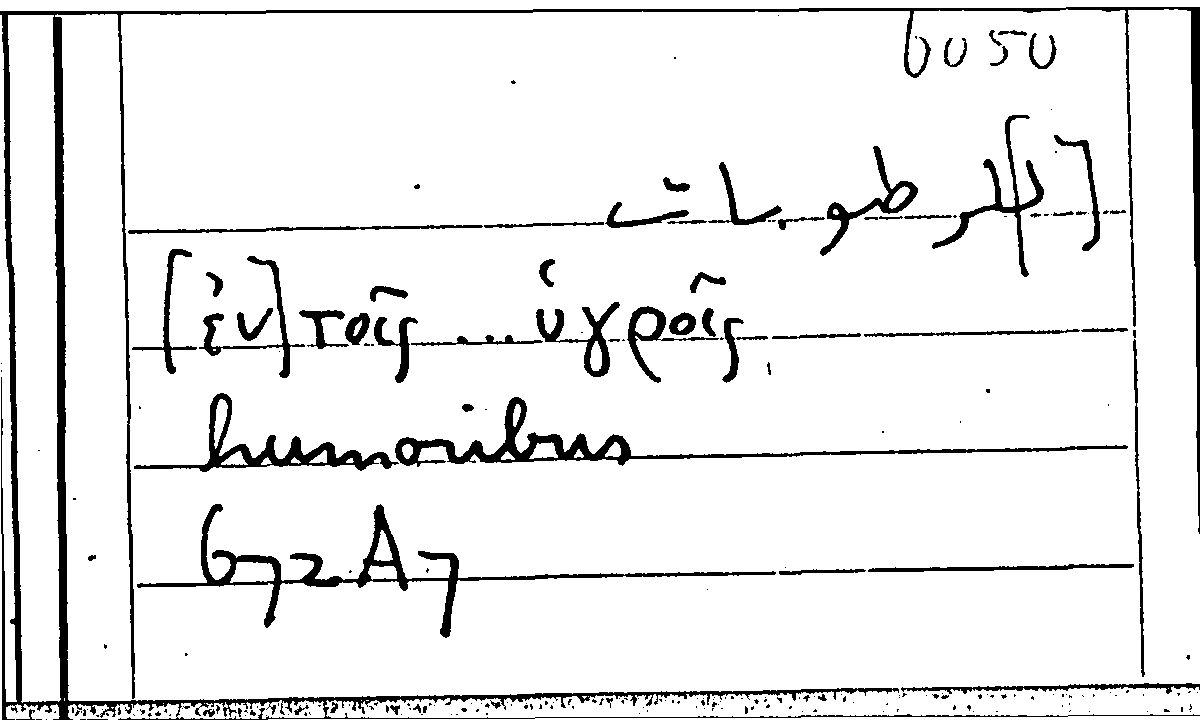 6050
[ال]رطوبات
[ἐν] τοῖς ... ὑγροῖς
humoribus
672A7